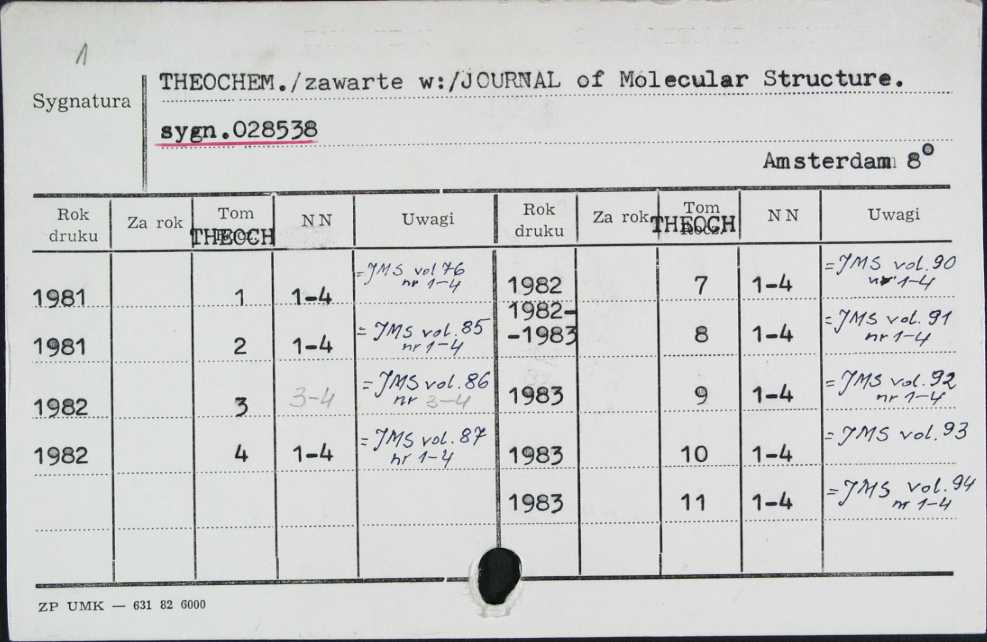 1
Sygnatura
THEOCHEM./zawarte w:/JOURNAL of Molecular Structure.
sygn.028538
Amsterdam 8°
Rok druku Za rok Tom THEOCH NN Uwagi Rok druku Za rok Tom Rocz. THEOCH NN Uwagi
1981 1 1-4 =JMS vol 76 nr 1-4 1982 7 1-4 =JMS vol. 90 nr 1-4
1981 2 1-4 =JMS vol. 85 nr 1-4 1982--1983 8 1-4 =JMS vol. 91 nr 1-4
1982 3 3-4 =JMS vol. 86 nr 3-4 1983 9 1-4 =JMS vol. 92 nr 1-4
1982 4 1-4 =JMS vol. 87 nr 1-4 1983 10 1-4 =JMS vol. 93
1983 11 1-4 =JMS vol. 94 nr 1-4
ZP UMK — 631 82 6000